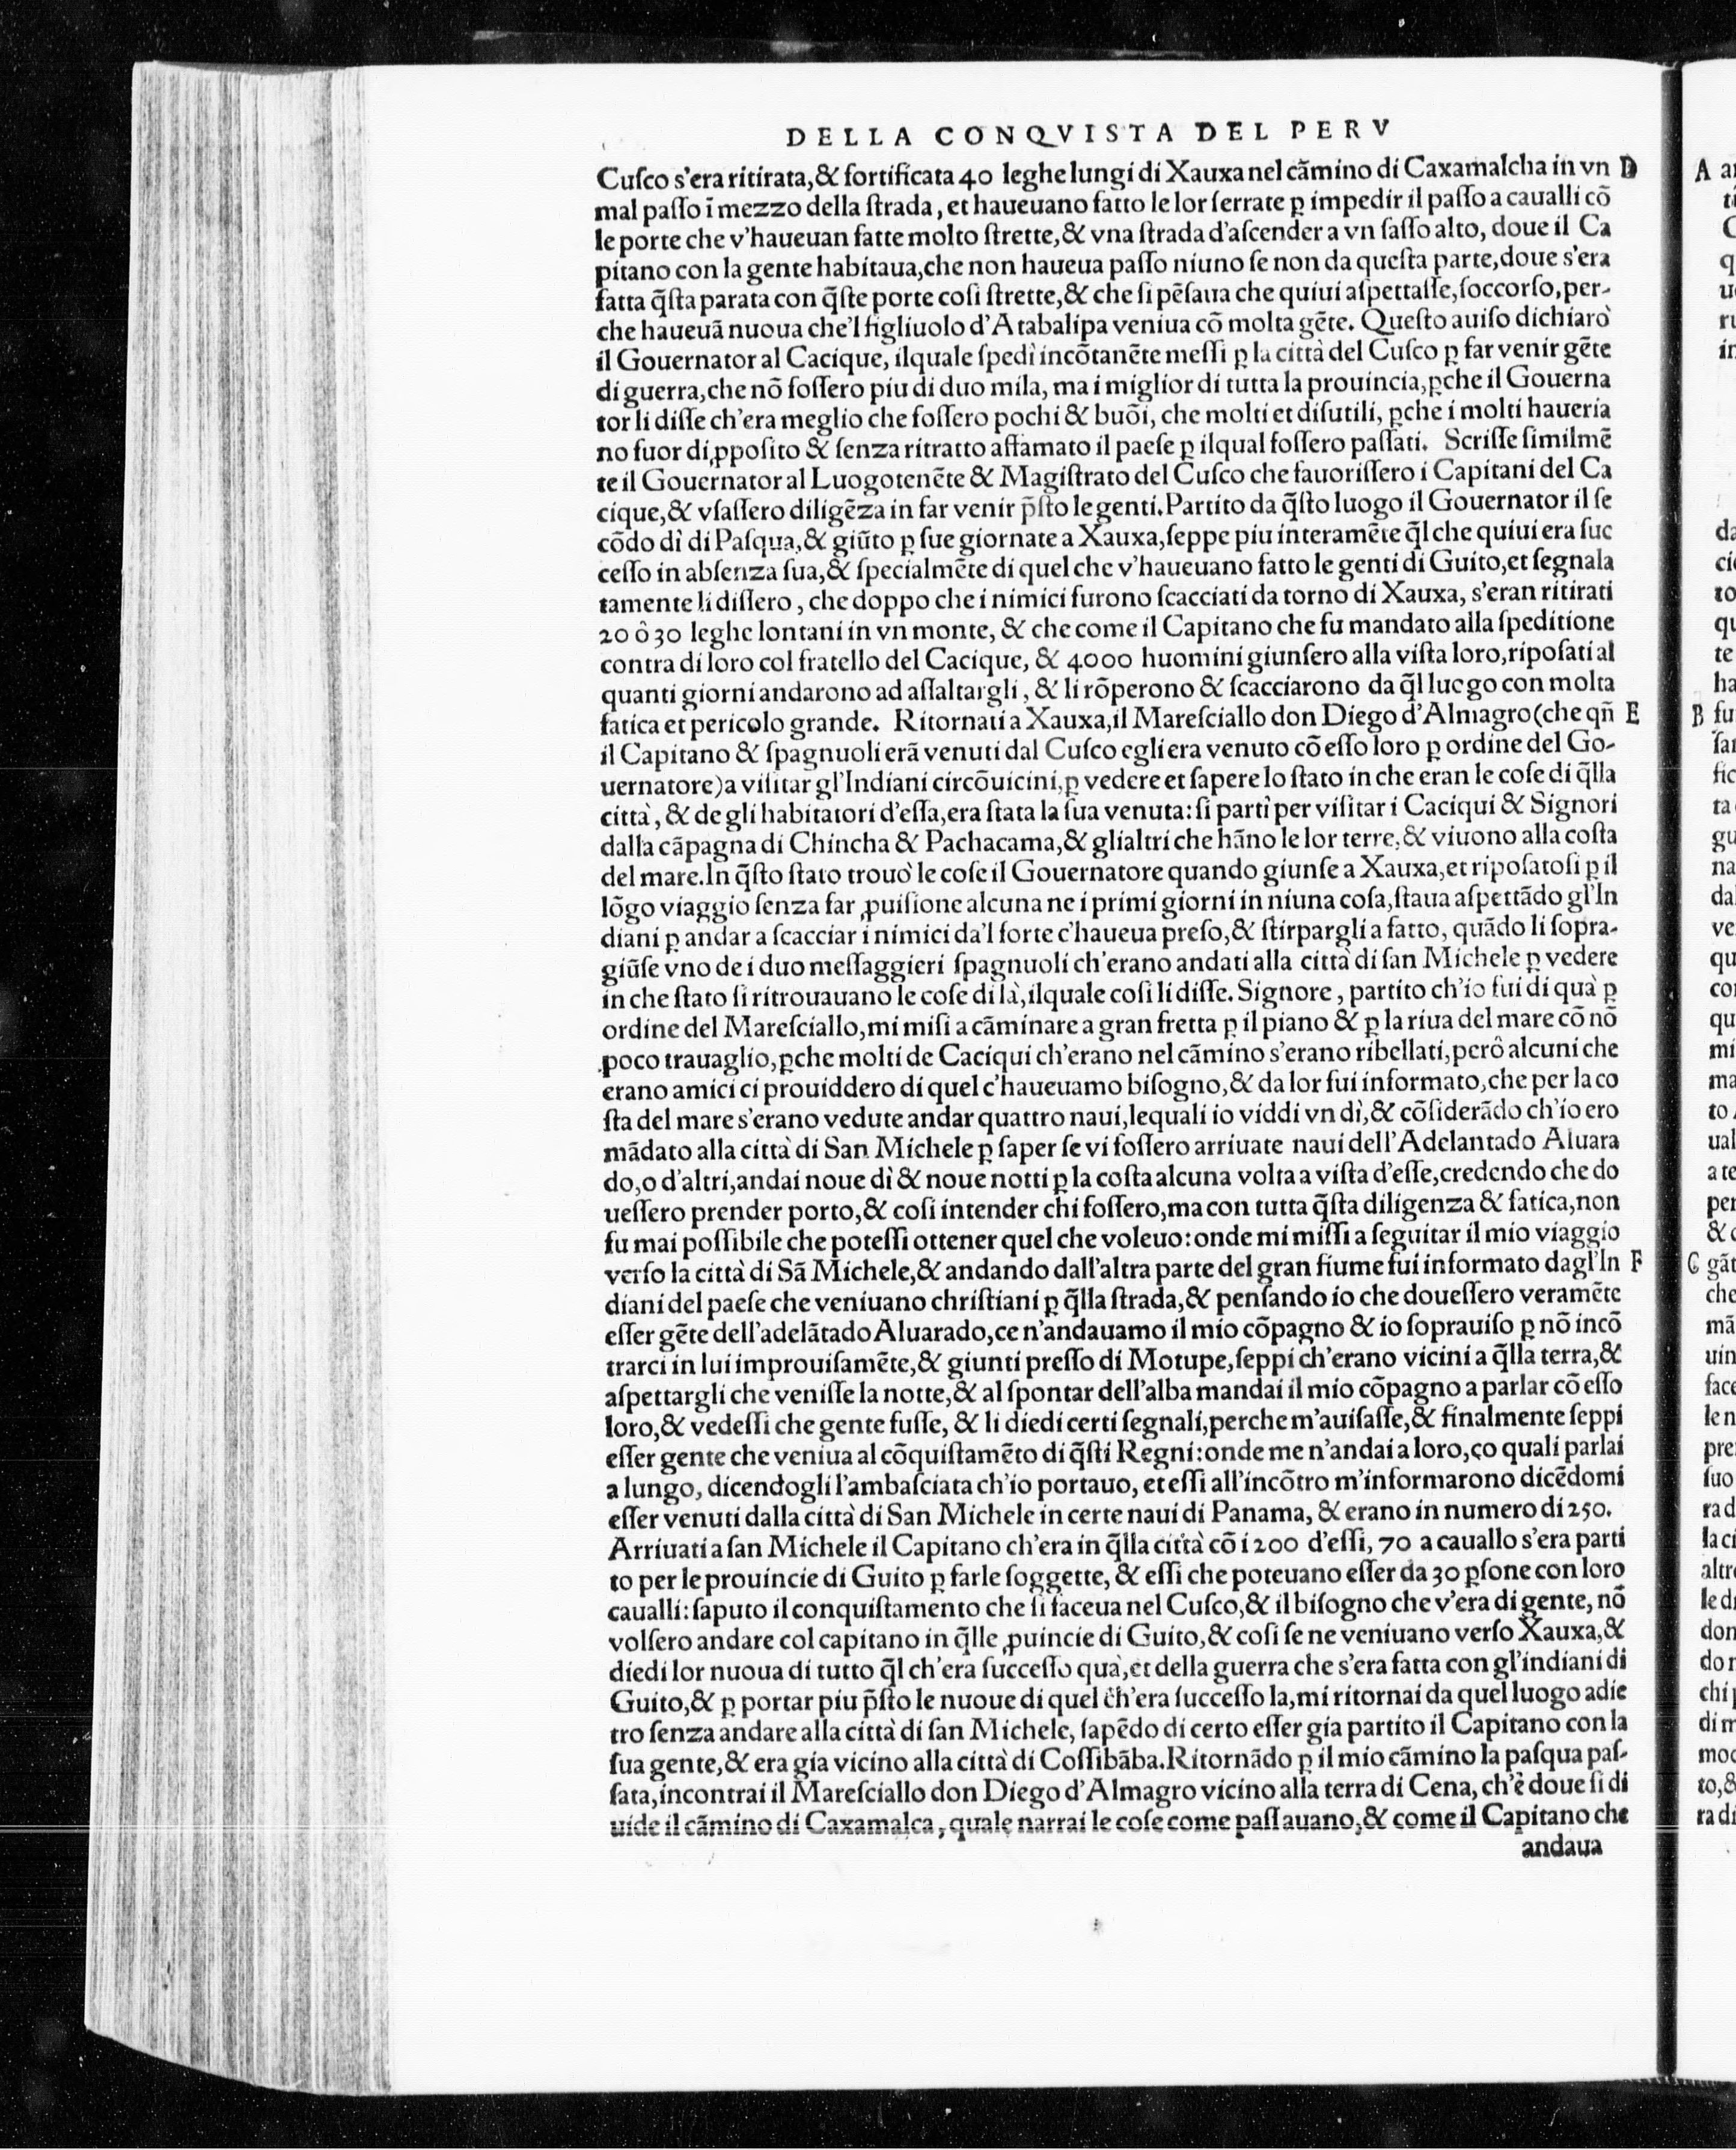 DELLA CONQVISTA DEL PERV
Cuſco s'era ritirata,& fortificata 40 leghe lungi di Xauxa nel cãmino di Caxamalcha in vn D
mal paſſo ĩ mezzo della ſtrada, et haueuano fatto le lor ſerrate ꝑ impedir il paſſo a caualli cõ
le porte che v'haueuan fatte molto ſtrette,& vna ſtrada d'aſcender a vn ſaſſo alto, doue il Ca
pitano con la gente habitaua,che non haueua paſſo niuno ſe non da queſta parte,doue s'era
fatta q̃ſta parata con q̃ſte porte coſi ſtrette,& che ſi pẽſaua che quiui aſpettaſſe,ſoccorſo,per-
che haueuã nuoua che'l figliuolo d'Atabalipa veniua cõ molta gẽte. Queſto auiſo dichiarò
il Gouernator al Cacique, ilquale ſpedì incõtanẽte meſſi ꝑ la città del Cuſco ꝑ far venir gẽte
di guerra,che nõ foſſero piu di duo mila, ma i miglior di tutta la prouincia,ꝑche il Gouerna
tor li diſſe ch'era meglio che foſſero pochi & buõi, che molti et diſutili, ꝑche i molti haueria
no fuor di ꝓpoſito & ſenza ritratto affamato il paeſe ꝑ ilqual foſſero paſſati. Scriſſe ſimilmẽ
te il Gouernator al Luogotenẽte & Magiſtrato del Cuſco che fauoriſſero i Capitani del Ca
cique,& vſaſſero diligẽza in far venir p̃ſto le genti.Partito da q̃ſto luogo il Gouernator il ſe
cõdo dì di Paſqua,& giũto ꝑ ſue giornate a Xauxa,ſeppe piu interamẽte q̃l che quiui era ſuc
ceſſo in abſenza ſua,& ſpecialmẽte di quel che v'haueuano fatto le genti di Guito,et ſegnala
tamente li diſſero, che doppo che i nimici furono ſcacciati da torno di Xauxa, s'eran ritirati
20 ô 30 leghe lontani in vn monte, & che come il Capitano che fu mandato alla ſpeditione
contra di loro col fratello del Cacique, & 4000 huomini giunſero alla viſta loro,ripoſati al
quanti giorni andarono ad aſſaltargli, & li rõperono & ſcacciarono da q̃l luogo con molta
fatica et pericolo grande. Ritornati a Xauxa,il Mareſciallo don Diego d'Almagro(che qñ E
il Capitano & ſpagnuoli erã venuti dal Cuſco egli era venuto cõ eſſo loro ꝑ ordine del Go-
uernatore)a viſitar gl'Indiani circõuicini,ꝑ vedere et ſapere lo ſtato in che eran le coſe di q̃lla
città, & de gli habitatori d'eſſa,era ſtata la ſua venuta: ſi partì per viſitar i Caciqui & Signori
dalla cãpagna di Chincha & Pachacama,& glialtri che hãno le lor terre,& viuono alla coſta
del mare.In q̃ſto ſtato trouò le coſe il Gouernatore quando giunſe a Xauxa,et ripoſatoſi ꝑ il
lõgo viaggio ſenza far ꝓuiſione alcuna ne i primi giorni in niuna coſa,ſtaua aſpettãdo gl'In
diani ꝑ andar a ſcacciar i nimici da'l forte c'haueua preſo,& ſtirpargli a fatto, quãdo li ſopra-
giũſe vno de i duo meſſaggieri ſpagnuoli ch'erano andati alla città di ſan Michele ꝑ vedere
in che ſtato ſi ritrouauano le coſe di là,ilquale coſi li diſſe. Signore, partito ch'io fui di quà ꝑ
ordine del Mareſciallo,mi miſi a cãminare a gran fretta ꝑ il piano & ꝑ la riua del mare cõ nõ
poco trauaglio,ꝑche molti de Caciqui ch'erano nel cãmino s'erano ribellati,però alcuni che
erano amici ci prouiddero di quel c'haueuamo biſogno,& da lor fui informato,che per la co
ſta del mare s'erano vedute andar quattro naui,lequali io viddi vn dì,& cõſiderãdo ch'io ero
mãdato alla città di San Michele ꝑ ſaper ſe vi foſſero arriuate naui dell'Adelantado Aluara
do,o d'altri,andai noue dì & noue notti ꝑ la coſta alcuna volta a viſta d'eſſe,credendo che do
ueſſero prender porto,& coſi intender chi foſſero,ma con tutta q̃ſta diligenza & fatica,non
fu mai poſſibile che poteſſi ottener quel che voleuo: onde mi miſſi a ſeguitar il mio viaggio
verſo la città di Sã Michele,& andando dall'altra parte del gran fiume fui informato dagl'In F
diani del paeſe che veniuano chriſtiani ꝑ q̃lla ſtrada,& penſando io che doueſſero veramẽte
eſſer gẽte dell'adelãtado Aluarado,ce n'andauamo il mio cõpagno & io ſoprauiſo ꝑ nõ incõ
trarci in lui improuiſamẽte,& giunti preſſo di Motupe,ſeppi ch'erano vicini a q̃lla terra,&
aſpettargli che veniſſe la notte,& al ſpontar dell'alba mandai il mio cõpagno a parlar cõ eſſo
loro,& vedeſſi che gente fuſſe, & li diedi certi ſegnali,perche m'auiſaſſe,& finalmente ſeppi
eſſer gente che veniua al cõquiſtamẽto di q̃ſti Regni: onde me n'andai a loro,co quali parlai
a lungo, dicendogli l'ambaſciata ch'io portauo, et eſſi all'incõtro m'informarono dicẽdomi
eſſer venuti dalla città di San Michele in certe naui di Panama, & erano in numero di 250.
Arriuati a ſan Michele il Capitano ch'era in q̃lla città cõ i 200 d'eſſi, 70 a cauallo s'era parti
to per le prouincie di Guito ꝑ farle ſoggette, & eſſi che poteuano eſſer da 30 ꝑſone con loro
caualli: ſaputo il conquiſtamento che ſi faceua nel Cuſco,& il biſogno che v'era di gente, nõ
volſero andare col capitano in q̃lle ꝓuincie di Guito,& coſi ſe ne veniuano verſo Xauxa,&
diedi lor nuoua di tutto q̃l ch'era ſucceſſo quà,et della guerra che s'era fatta con gl'indiani di
Guito,& ꝑ portar piu p̃ſto le nuoue di quel ch'era ſucceſſo la,mi ritornai da quel luogo adie
tro ſenza andare alla città di ſan Michele, ſapẽdo di certo eſſer gia partito il Capitano con la
ſua gente,& era gia vicino alla città di Coſſibãba.Ritornãdo ꝑ il mio cãmino la paſqua paſ-
ſata,incontrai il Mareſciallo don Diego d'Almagro vicino alla terra di Cena, ch'è doue ſi di
uide il cãmino di Caxamalca, quale narrai le coſe come paſſauano,& come il Capitano che
andaua